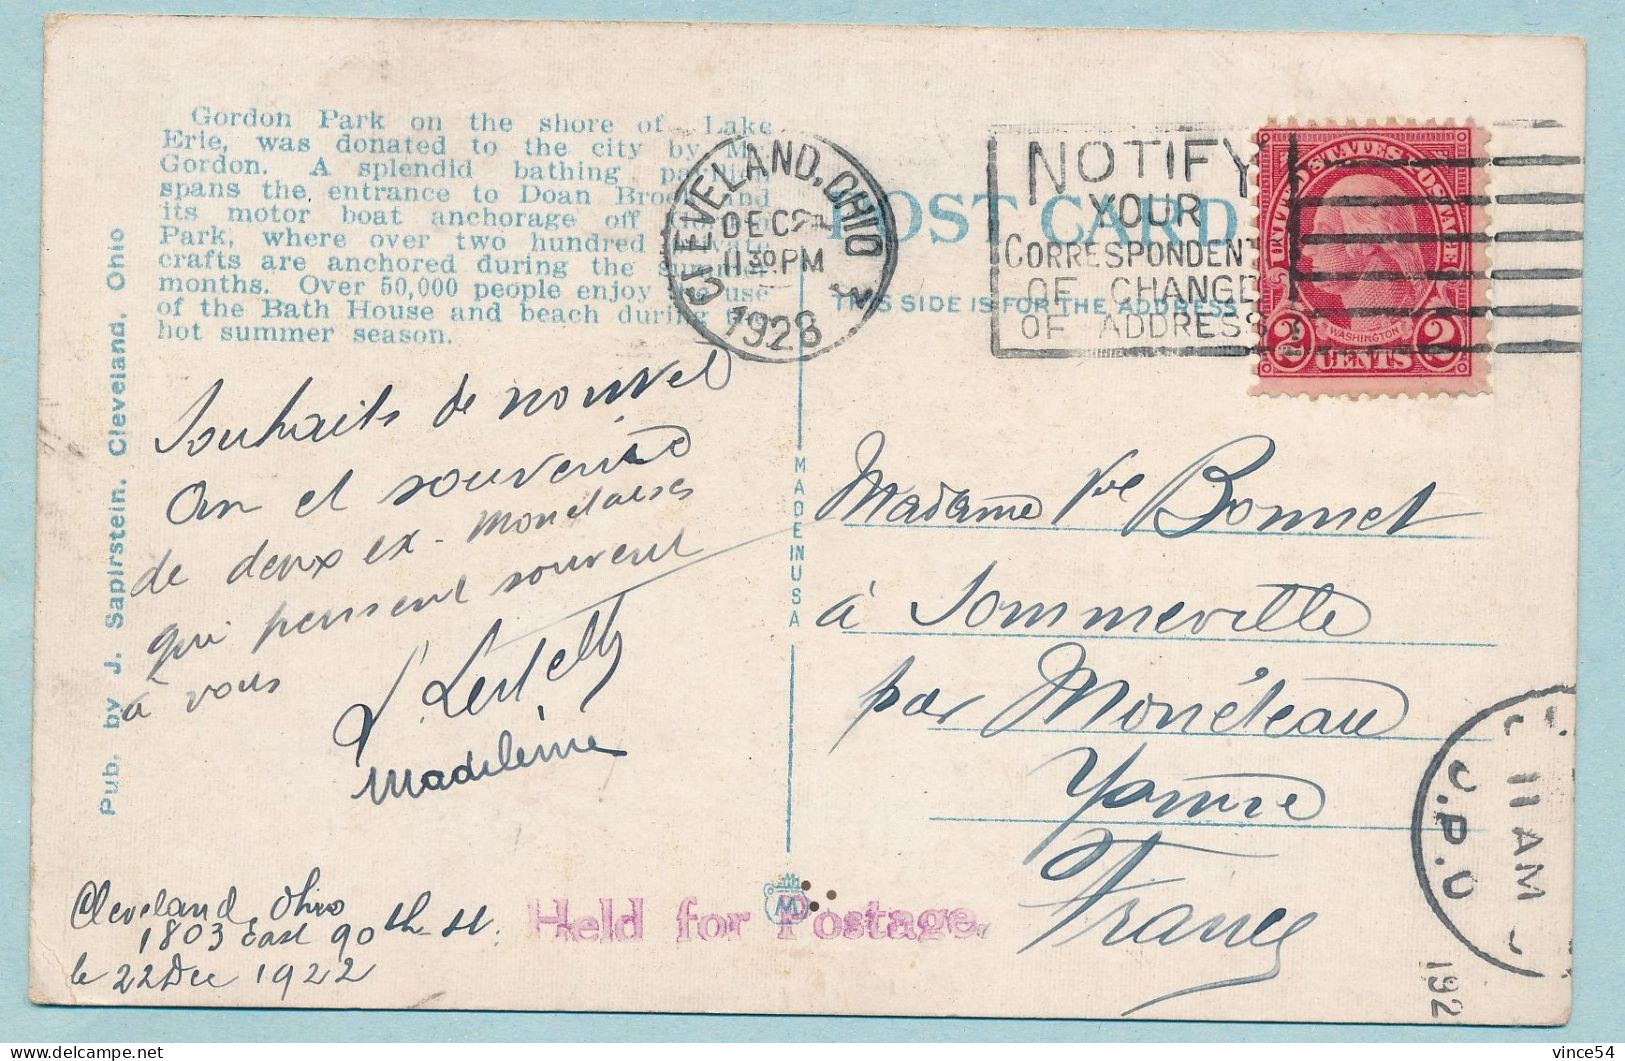 Gordon Park on the shore of Lake
Erie, was donated to the city by Mr.
Gordon. A splendid bathing pavilion
spans the entrance to Doan Brook and
its motor boat anchorage off Gordon
Park, where over two hundred private
crafts are anchored during the summer
months. Over 50,000 people enjoy the use
of the Bath House and beach during the
hot summer season.
CLEVELAND, OHIO
DEC
11 30 PM
1928
NOTIFY
YOUR
CORRESPONDENTS
OF CHANGE
OF ADDRESS
POST CARD
THIS SIDE IS FOR THE ADDRESS
UNITED STATES POSTAGE
WASHINGTON
2 CENTS 2
Pub. by J. Sapirstein, Cleveland, Ohio
MADE IN USA
Souhaits de nouvel
an et souvenirs
de deux ex-Monétaises
qui pensent souvent
à vous
Madeleine
Madame Vve Bonnet
à Sommeville
par Monéteau
Yonne
France
Cleveland, Ohio
1803 East 90th St.
le 22 Dec 1922
Held for Postage.
M
11 AM
192
vince54